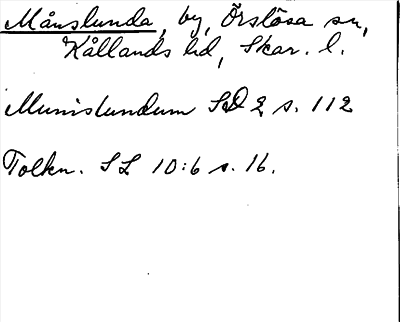 Månslunda, by, Örslösa sn,
Kållands hd, Skar. l.
Munislundum SD 2 s. 112
Tolkn. SL 10:6 s. 16.